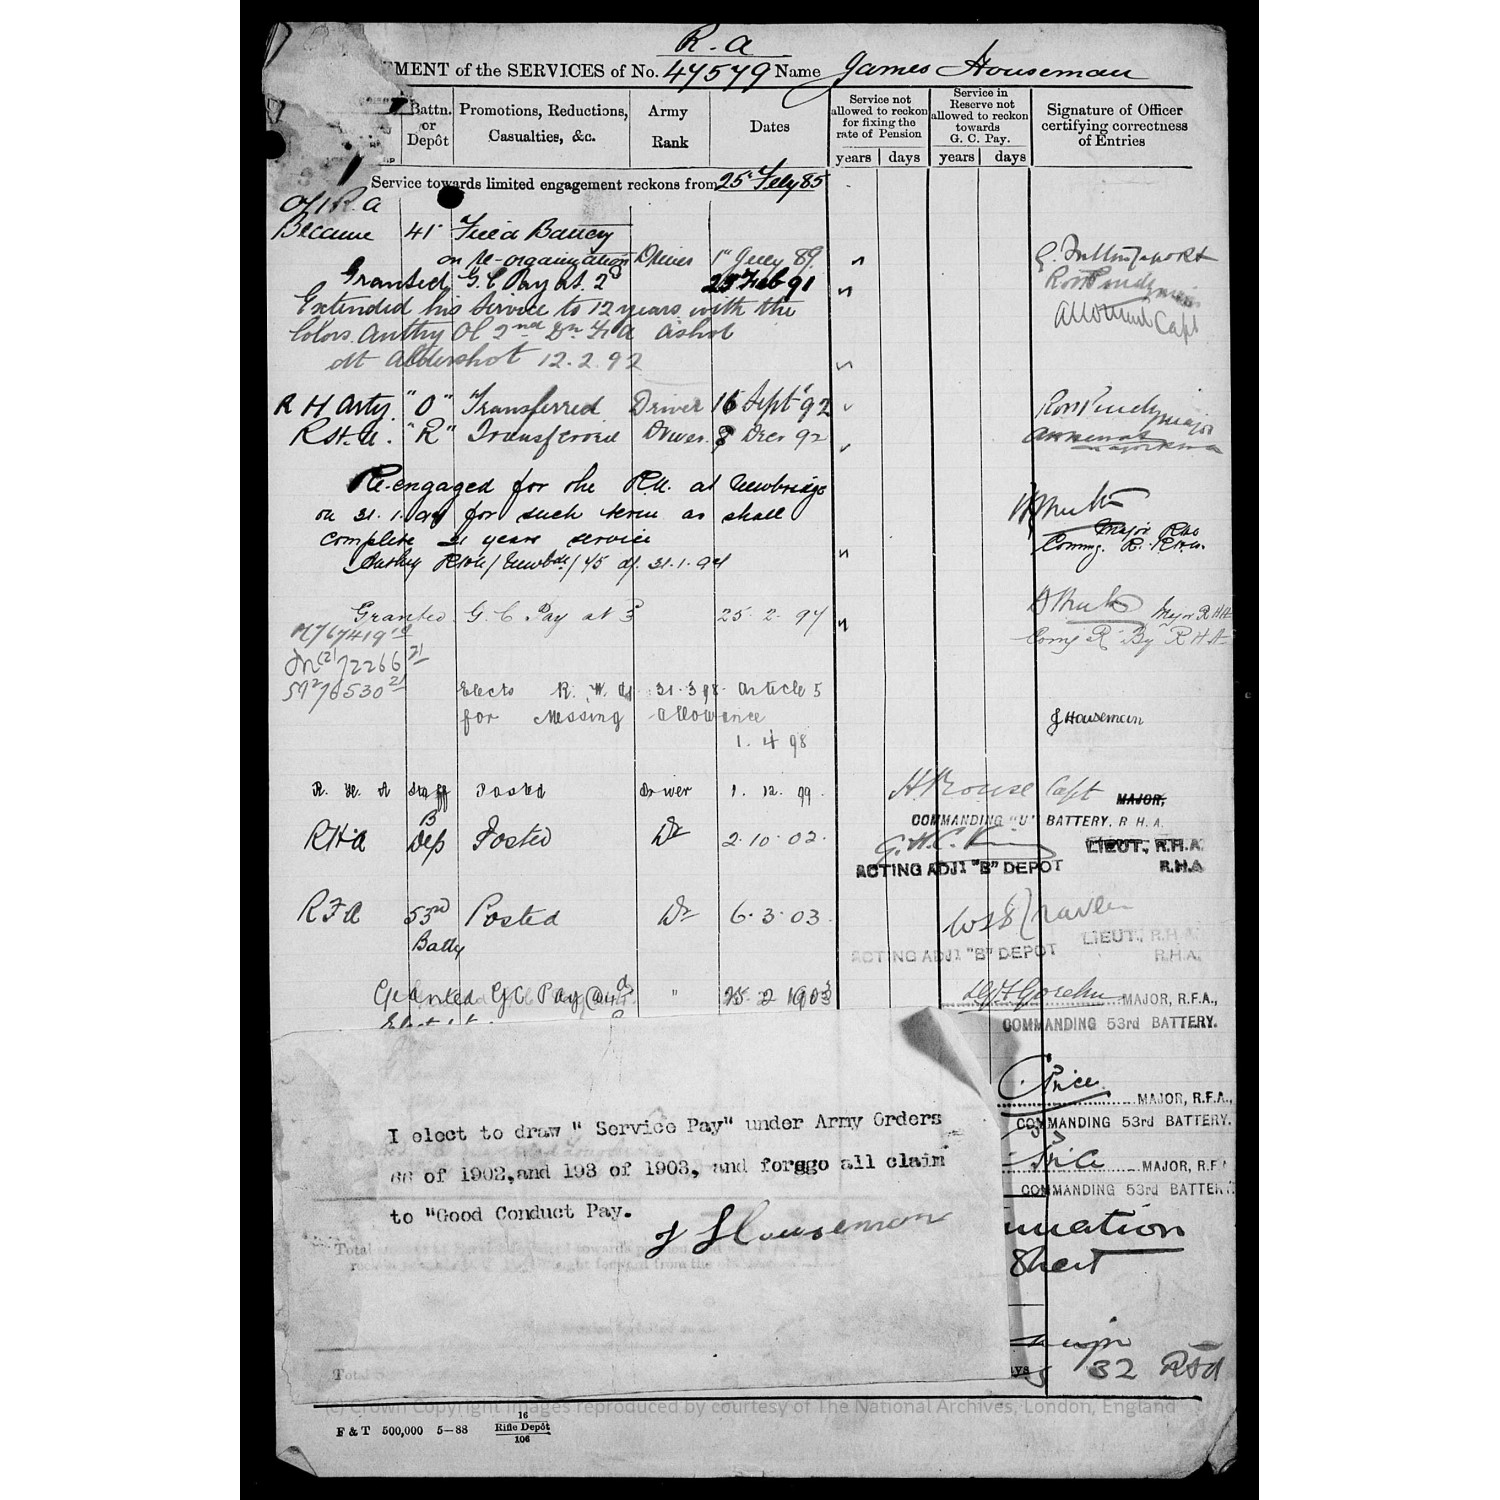 R. A
MENT of the SERVICES of No. 47579 Name James Houseman
Battn. or Depôt
Promotions, Reductions, Casualties, &c.
Army Rank
Dates
Service not allowed to reckon for fixing the rate of Pension
years days
Service in Reserve not allowed to reckon towards G. C. Pay.
years days
Signature of Officer certifying correctness of Entries
Service towards limited engagement reckons from 25 Feby 85
R. A
Became 41 Field Battery
on re-organization Driver 1st July 89.
Granted G. C Pay at 2d 25 Feb 91
Extended his Service to 12 years with the
Colors. Authy OC 2nd Dn F A Aishot
At Aldershot 12.2.92
Capt
R H Arty. "O" Transferred Driver 16 Sept 92
R.H.A. "R" Transferred Driver. 8 Decr 92
Major
Re-engaged for the R.A. at Newbridge
on 31.1.94 for such term as shall
complete 21 years service
Authy RHA/Newbde/45 d/ 31.1.94
Major RHA
Comg. R. R.H.A.
Granted G. C Pay at 3 25. 2. 97
Major R H A
Comg R By R H A
M/67419
72266
57 76530
Elects R. W. d/ 31.3.98. Article 5
for Messing Allowance
1. 4 98
J Houseman
R. H. A Staff Posted Driver 1. 12. 99
H Rouse Capt MAJOR,
COMMANDING "U" BATTERY. R. H. A.
RHA B Dep Posted Dr 2. 10. 02.
G. H. C.
LIEUT., R.H.A.
ACTING ADJT "B" DEPOT R.H.A.
RFA 53rd Batty Posted Dr 6. 3. 03.
LIEUT., R.H.A.
ACTING ADJT "B" DEPOT R.H.A.
Granted GC Pay " 25. 2 1903
MAJOR, R.F.A.,
COMMANDING 53rd BATTERY.
Price
MAJOR, R.F.A.,
COMMANDING 53rd BATTERY.
Price
MAJOR, R.F.
COMMANDING 53rd BATTERY.
I elect to draw " Service Pay" under Army Orders
66 of 1902,and 193 of 1903, and forego all claim
to "Good Conduct Pay.
J Houseman
uation
Sheet
Total
Total
32
(c) Crown Copyright Images reproduced by courtesy of The National Archives, London, England
F & T 500,000 5—88
16
Rifle Depôt
106